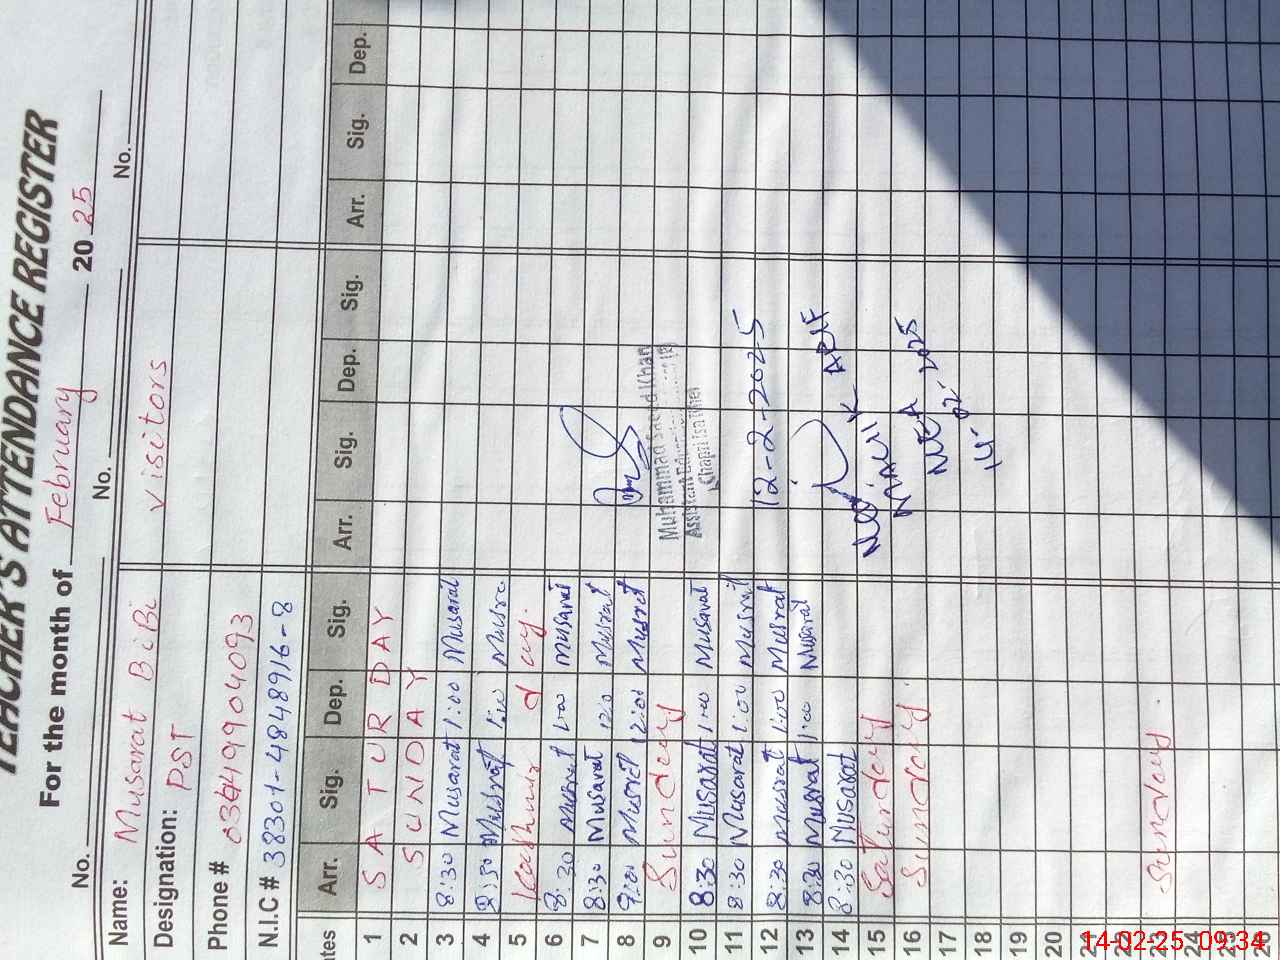 TEACHER'S ATTENDANCE REGISTER
For the month of February 2025
No. No. No.
Name: Musarat BiBi Visitors
Designation: PST
Phone # 03449904093
N.I.C # 38301-4848916-8
Arr. Sig. Dep. Sig. Arr. Sig. Dep. Sig. Arr. Sig. Dep.
1 SATURDAY
2 SUNDAY
3 8:30 Musarat 1:00 Musarat
4 Musrat
5 Kashmir day
6 8:30 Musrat 1:00 Musarat
7 8:30 Musarat Musrat
8 Musret 12:00 Musret
Muhammad Saeed Khan
9 Sunday
Chapri
10 8:30 Musarat 1:00 Musarat
11 8:30 Musarat 1:00 Musrat
12 8:30 Musrat 1:00 Musrat 12-2-2025
13 8:30 Musrat 1:00 Musarat
14 8:30 Musarat
15 Saturday
16 Sunday
MEA
14-02-2025
17
18
19
20
21
22
23 Sunday
24
25
26
14-02-25 09:34